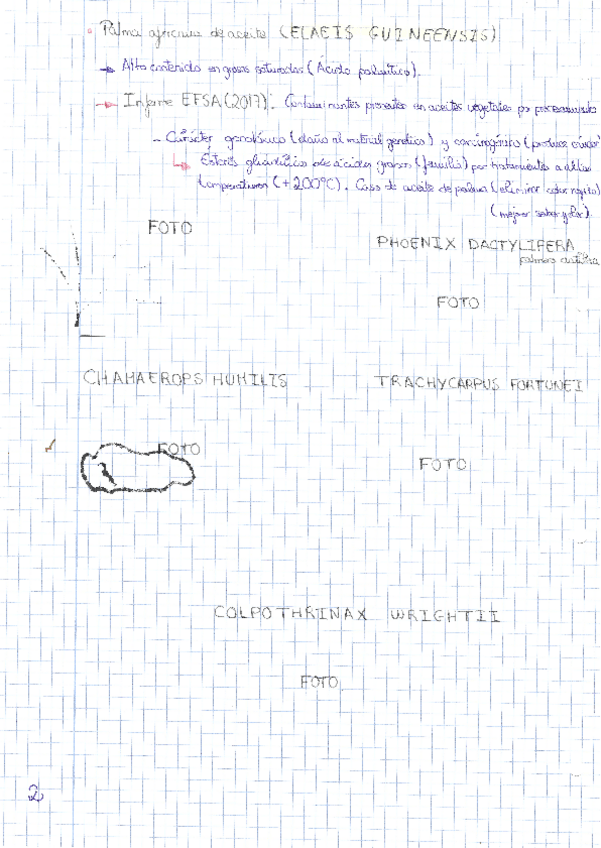 Palma africana de aceite (ELAEIS GUINEENSIS)
→ Alto contenido en grasas saturadas (Ácido palmítico).
→ Informe EFSA (2017): Contaminantes presentes en aceites vegetales por procesamiento
- Carácter genotóxico (daño al material genético) y carcinogénico (produce cáncer)
↳ Ésteres glicidílicos de ácidos grasos (familia) por tratamiento a altas
temperaturas (+200ºC). Caso de aceite de palma (eliminar color rojizo)
(mejor sabor y olor).
FOTO
PHOENIX DACTYLIFERA
FOTO
CHAMAEROPS HUMILIS
TRACHYCARPUS FORTUNEI
FOTO
FOTO
COLPOTHRINAX WRIGHTII
FOTO
2